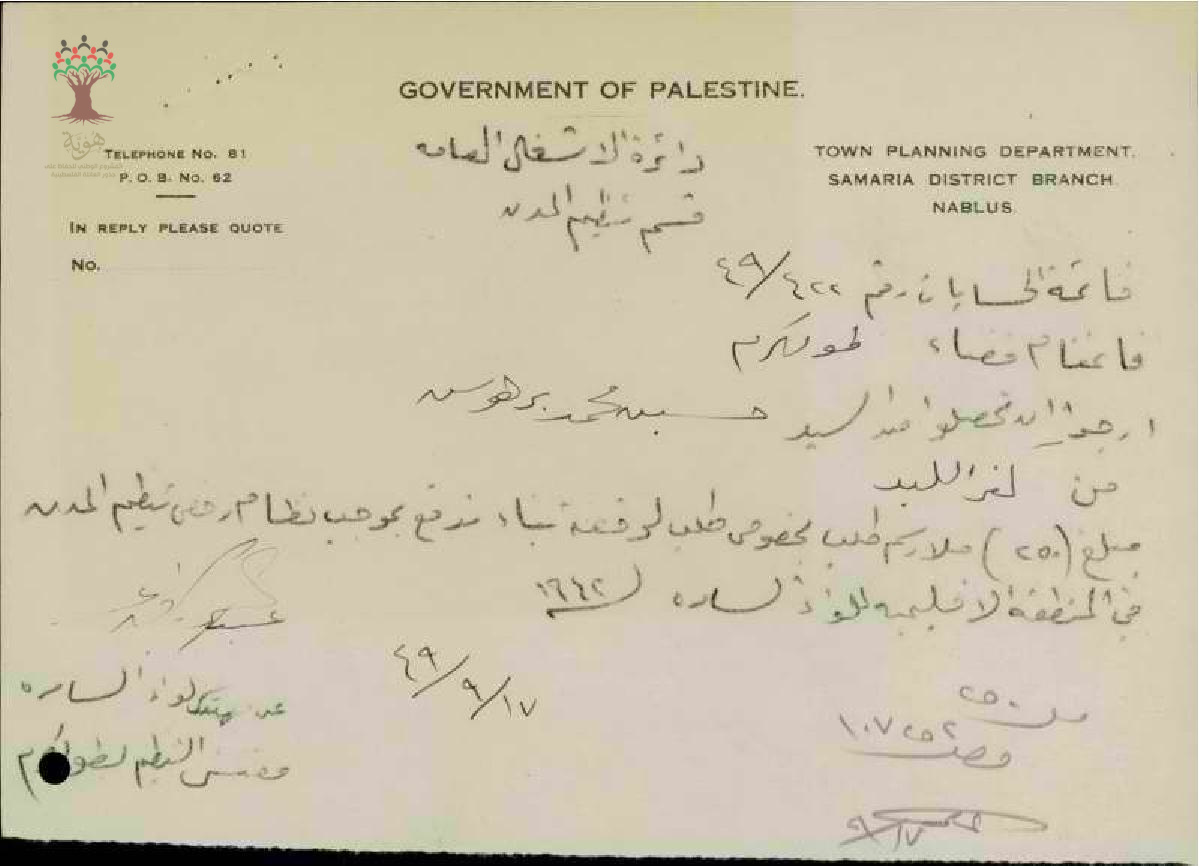 هوية
GOVERNMENT OF PALESTINE.
TELEPHONE No. 81
P. O. B. No. 62
IN REPLY PLEASE QUOTE
No.
TOWN PLANNING DEPARTMENT.
SAMARIA DISTRICT BRANCH.
NABLUS.
دائرة الاشغال العامه
قسم تنظيم المدن
قائمة الحسابات رقم ٤٢٢/٤٩
قائمقام قضاء طولكرم
ارجو ان تحصلوا من السيد حسين محمد
من كفر اللبد
مبلغ (٢٥٠) ملا رسم طلب بخصوص طلب لرخصة بناء تدفع بموجب نظام رخص تنظيم المدن
في المنطقة الاقليميه للواء السامره لسنة ١٩٤٢
٤٩/٩/١٧
عن مهندس لواء السامره
مفتش التنظيم لطولكرم
مل ٢٥٠
وصل ١٠٧٢٥٢
٩/١٧